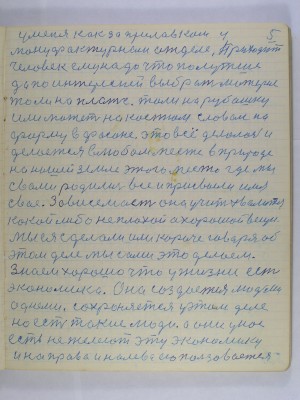 у меня как за прилавком у 5
мануфактурным отделе, Приходит
человек ему надо что получше
да по интересней выбрат материе
то ли на плате. то ли на рубашку
или может на костюм словом на
форму в фасоне. это всё делалос и
делается в любом месте в природе
на нашей земле этого место где мы
свами родилис все и присвоили имя
свае. Зависемаст она учит хвалится
какой либо неплохой а хорошой вещи.
мы ея сделали или кароче говаря об
этом деле мы сами это делаем.
Знаем хорошо что у жизни ест
экономика. Она создается людми
одними, сохроняется у этом деле
но ест такие люди. а они у нас
есть не желеют эту экономику
и направа и налева ею ползоваетея